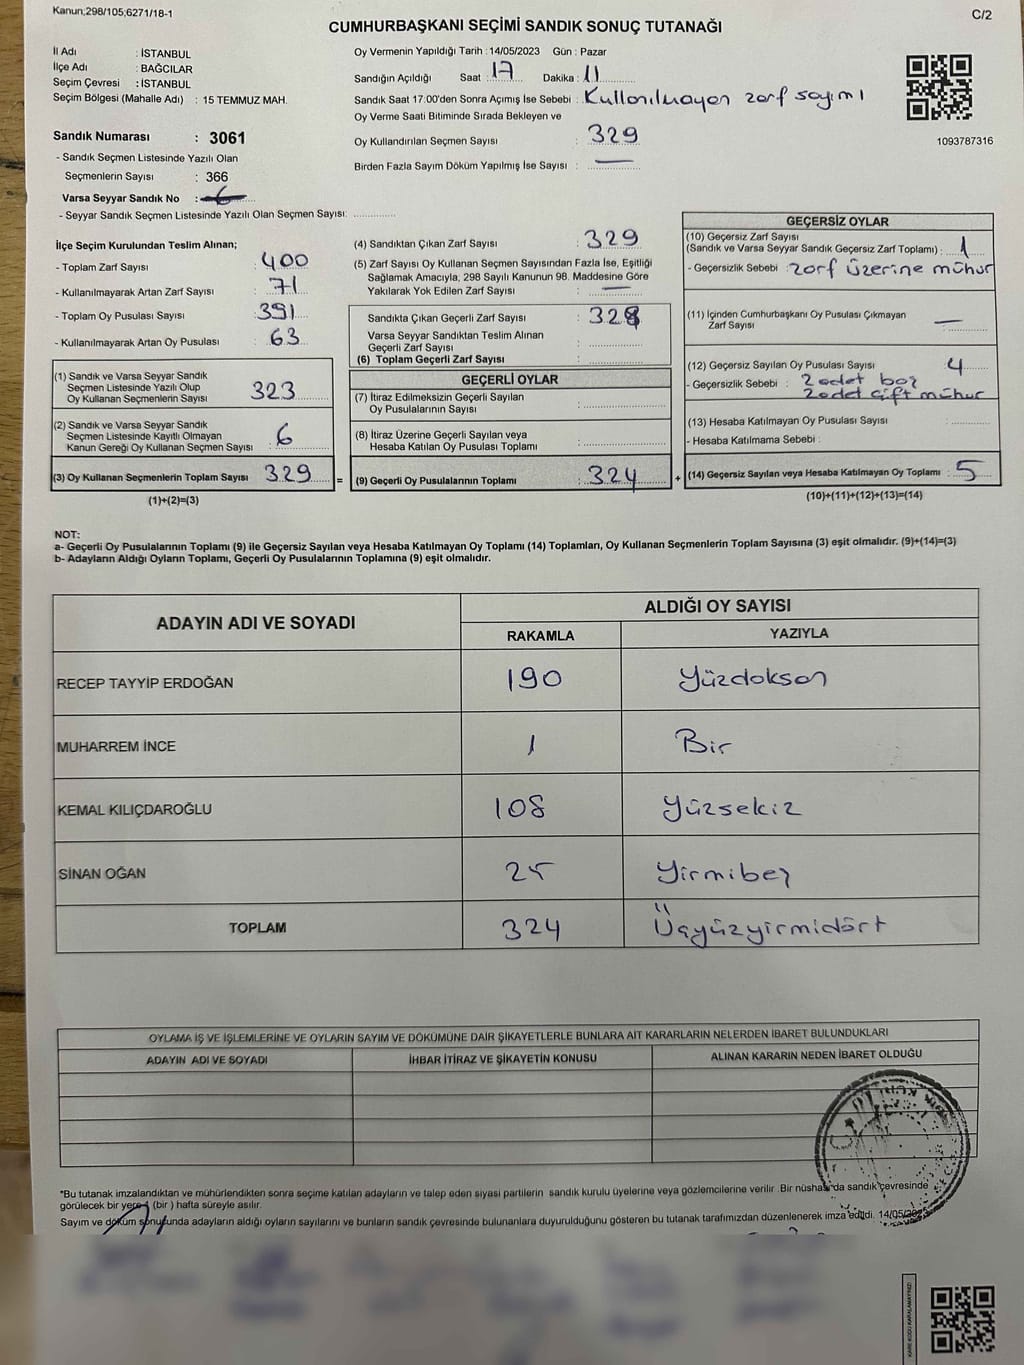 Kanun;298/105;6271/18-1
C/2
CUMHURBAŞKANI SEÇİMİ SANDIK SONUÇ TUTANAĞI
İl Adı : İSTANBUL
İlçe Adı : BAĞCILAR
Seçim Çevresi : İSTANBUL
Seçim Bölgesi (Mahalle Adı) : 15 TEMMUZ MAH.
Sandık Numarası : 3061
- Sandık Seçmen Listesinde Yazılı Olan
Seçmenlerin Sayısı : 366
Varsa Seyyar Sandık No :
- Seyyar Sandık Seçmen Listesinde Yazılı Olan Seçmen Sayısı:
Oy Vermenin Yapıldığı Tarih : 14/05/2023 Gün : Pazar
Sandığın Açıldığı Saat : 17 Dakika : 11
Sandık Saat 17:00'den Sonra Açımış İse Sebebi : Kullanılmayan zarf sayımı
Oy Verme Saati Bitiminde Sırada Bekleyen ve
Oy Kullandırılan Seçmen Sayısı : 329
Birden Fazla Sayım Döküm Yapılmış İse Sayısı : —
1093787316
İlçe Seçim Kurulundan Teslim Alınan;
- Toplam Zarf Sayısı : 400
- Kullanılmayarak Artan Zarf Sayısı : 71
- Toplam Oy Pusulası Sayısı : 391
- Kullanılmayarak Artan Oy Pusulası : 63
(1) Sandık ve Varsa Seyyar Sandık
Seçmen Listesinde Yazılı Olup
Oy Kullanan Seçmenlerin Sayısı : 323
(2) Sandık ve Varsa Seyyar Sandık
Seçmen Listesinde Kayıtlı Olmayan
Kanun Gereği Oy Kullanan Seçmen Sayısı : 6
(3) Oy Kullanan Seçmenlerin Toplam Sayısı : 329 =
(1)+(2)=(3)
(4) Sandıktan Çıkan Zarf Sayısı : 329
(5) Zarf Sayısı Oy Kullanan Seçmen Sayısından Fazla İse, Eşitliği
Sağlamak Amacıyla, 298 Sayılı Kanunun 98. Maddesine Göre
Yakılarak Yok Edilen Zarf Sayısı : —
Sandıkta Çıkan Geçerli Zarf Sayısı : 328
Varsa Seyyar Sandıktan Teslim Alınan
Geçerli Zarf Sayısı :
(6) Toplam Geçerli Zarf Sayısı :
GEÇERLİ OYLAR
(7) İtiraz Edilmeksizin Geçerli Sayılan
Oy Pusulalarının Sayısı :
(8) İtiraz Üzerine Geçerli Sayılan veya
Hesaba Katılan Oy Pusulası Toplamı :
(9) Geçerli Oy Pusulalarının Toplamı : 324 +
GEÇERSİZ OYLAR
(10) Geçersiz Zarf Sayısı
(Sandık ve Varsa Seyyar Sandık Geçersiz Zarf Toplamı) : 1
- Geçersizlik Sebebi : zarf üzerine mühür
(11) İçinden Cumhurbaşkanı Oy Pusulası Çıkmayan
Zarf Sayısı : —
(12) Geçersiz Sayılan Oy Pusulası Sayısı : 4
- Geçersizlik Sebebi : 2 adet boş
2 adet çift mühür
(13) Hesaba Katılmayan Oy Pusulası Sayısı :
- Hesaba Katılmama Sebebi :
(14) Geçersiz Sayılan veya Hesaba Katılmayan Oy Toplamı : 5
(10)+(11)+(12)+(13)=(14)
NOT:
a- Geçerli Oy Pusulalarının Toplamı (9) ile Geçersiz Sayılan veya Hesaba Katılmayan Oy Toplamı (14) Toplamları, Oy Kullanan Seçmenlerin Toplam Sayısına (3) eşit olmalıdır. (9)+(14)=(3)
b- Adayların Aldığı Oyların Toplamı, Geçerli Oy Pusulalarının Toplamına (9) eşit olmalıdır.
ADAYIN ADI VE SOYADI
ALDIĞI OY SAYISI
RAKAMLA YAZIYLA
RECEP TAYYİP ERDOĞAN 190 Yüzdoksan
MUHARREM İNCE 1 Bir
KEMAL KILIÇDAROĞLU 108 Yüzsekiz
SİNAN OĞAN 25 Yirmibeş
TOPLAM 324 Üçyüzyirmidört
OYLAMA İŞ VE İŞLEMLERİNE VE OYLARIN SAYIM VE DÖKÜMÜNE DAİR ŞİKAYETLERLE BUNLARA AİT KARARLARIN NELERDEN İBARET BULUNDUKLARI
ADAYIN ADI VE SOYADI İHBAR İTİRAZ VE ŞİKAYETİN KONUSU ALINAN KARARIN NEDEN İBARET OLDUĞU
*Bu tutanak imzalandıktan ve mühürlendikten sonra seçime katılan adayların ve talep eden siyasi partilerin sandık kurulu üyelerine veya gözlemcilerine verilir .Bir nüshası da sandık çevresinde
görülecek bir yere 1 (bir ) hafta süreyle asılır.
Sayım ve döküm sonunda adayların aldığı oyların sayılarını ve bunların sandık çevresinde bulunanlara duyurulduğunu gösteren bu tutanak tarafımızdan düzenlenerek imza edildi. 14/05/2023